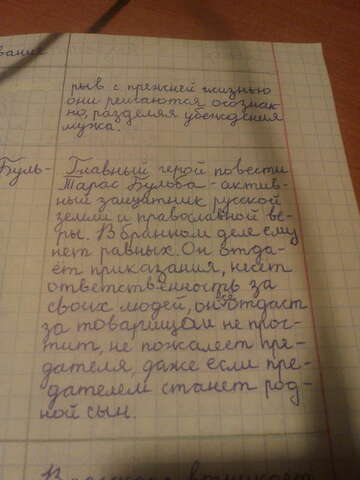 вание
рыв с прежней жизнью
они решаются осознан-
но, разделяя убеждения
мужа.
Буль-
Главный герой повести
Тарас Бульба - актив-
ный защитник русской
земли и православной ве-
ры. В бранном деле ему
нет равных. Он отда-
ёт приказания, несёт
ответственность за
своих людей, он всё отдаст
за товарища и не прос-
тит, не пожалеет пре-
дателя, даже если пре-
дателем станет род-
ной сын.